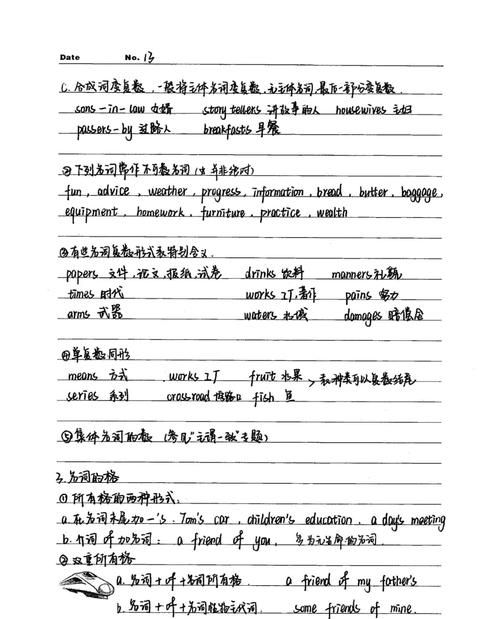 Date No. 13
C. 合成词变复数,一般将主体名词变复数,无主体名词,最后一部分变复数.
sons-in-law 女婿 story tellers 讲故事的人 housewives 主妇
passers-by 过路人 breakfasts 早餐
②下列名词常作不可数名词(但并非绝对)
fun, advice, weather, progress, information, bread, butter, baggage,
equipment, homework, furniture, practice, wealth
③有些名词复数形式表特别含义.
papers 文件,论文,报纸,试卷 drinks 饮料 manners 礼貌
times 时代 works 工厂,著作 pains 努力
arms 武器 waters 水域 damages 赔偿金
④单复数同形
means 方式 works 工厂 fruit 水果 > 表种类可以复数结尾
series 系列 crossroad 十字路口 fish 鱼
⑤集体名词的数(参见"主谓一致"专题)
3. 名词的格
①所有格的两种形式.
a. 在名词末尾加-'s. Tom's car, children's education, a day's meeting
b. 介词 of 加名词: a friend of you, 多为无生命的名词.
②双重所有格
a. 名词+of+名词所有格. a friend of my father's
b. 名词+of+名词性物主代词. some friends of mine.